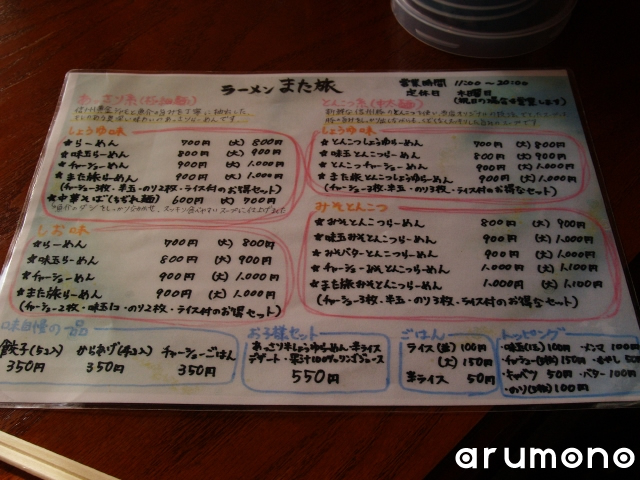 ラーメン また旅
営業時間 11:00〜20:00
定休日 木曜日
(祝日の場合は営業します)
あっさり系(極細麺)
とんこつ系(中太麺)
しょうゆ味
★らーめん 700円 (大) 800円
★味玉らーめん 800円 (大) 900円
★チャーシューめん 900円 (大) 1,000円
★また旅らーめん 900円 (大) 1,000円
(チャーシュー3枚・半玉・のり2枚・ライス付のお得セット)
★中華そば(ちぢれ麺) 600円 (大) 700円
しょうゆ味
★とんこつしょうゆらーめん 700円 (大) 800円
★味玉とんこつらーめん 800円 (大) 900円
★とんこつチャーシューめん 900円 (大) 1,000円
★また旅とんこつらーめん 900円 (大) 1,000円
(チャーシュー3枚・半玉・のり3枚・ライス付のお得セット)
しお味
★らーめん 700円 (大) 800円
★味玉らーめん 800円 (大) 900円
★チャーシューめん 900円 (大) 1,000円
★また旅らーめん 900円 (大) 1,000円
(チャーシュー2枚・味玉1コ・のり2枚・ライス付のお得セット)
みそとんこつ
★みそとんこつらーめん 800円 (大) 900円
★味玉みそとんこつらーめん 900円 (大) 1,000円
★みそバターとんこつらーめん 900円 (大) 1,000円
★チャーシューみそとんこつらーめん 1,000円 (大) 1,100円
★また旅みそとんこつらーめん 1,000円 (大) 1,100円
(チャーシュー3枚・半玉・のり3枚・ライス付のお得なセット)
味自慢の一品
餃子(5コ入) からあげ(4コ入) チャーシューごはん
350円 350円 350円
お子様セット
あっさり半しょうゆらーめん・半ライス
デザート・果汁100%リンゴジュース
550円
ごはん
ライス(並) 100円
(大) 150円
半ライス 50円
トッピング
・味玉(1コ) 100円 ・メンマ 100円
・チャーシュー(3枚) 150円 ・もやし 50円
・キャベツ 50円 ・バター 100円
・のり(5枚) 100円
arumono